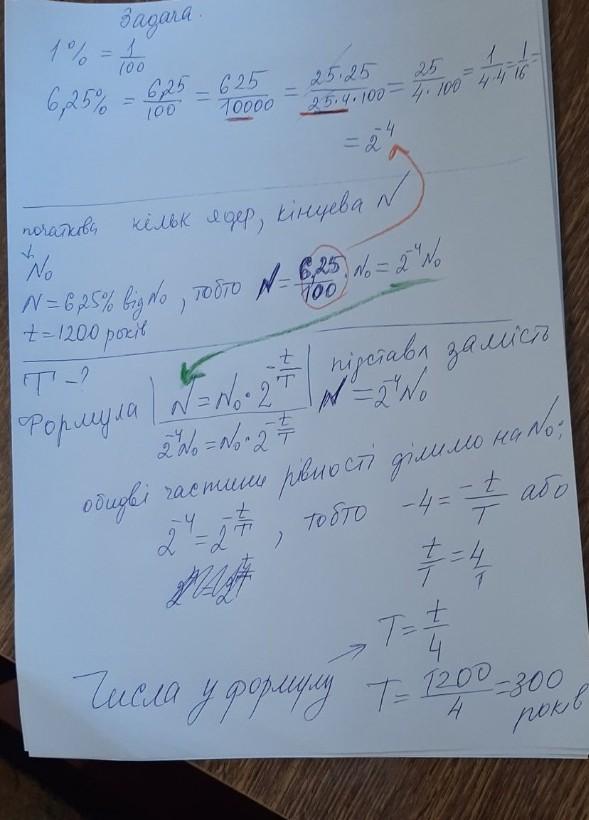 Задача.
1% = 1/100
6,25% = 6,25/100 = 625/10000 = 25·25/25·4·100 = 25/4·100 = 1/4·4 = 1/16 =
= 2^-4
початкова кільк ядер, кінцева N
↓
N₀
N = 6,25% від N₀, тобто N = 6,25/100 · N₀ = 2^-4 N₀
t = 1200 років
T - ?
Формула | N = N₀ · 2^-t/T | підставл замість
2^-4 N₀ = N₀ · 2^-t/T N = 2^-4 N₀
обидві частини рівності ділимо на N₀:
2^-4 = 2^-t/T, тобто -4 = -t/T або
t/T = 4/T
T = t/4
Числа у формулу → T = 1200/4 = 300
років